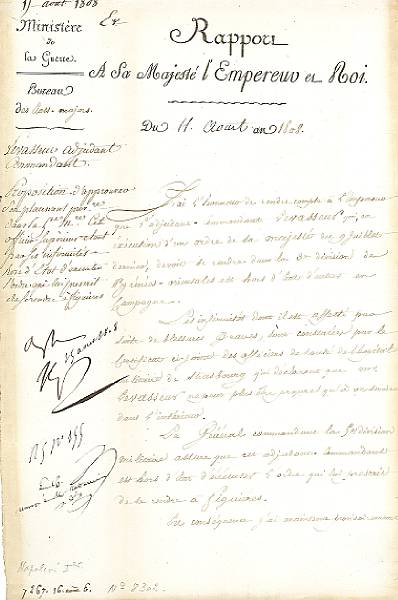 11 août 1808
Ministère
de
la Guerre.
Bureau
des États-majors.
Levasseur adjudant
Commandant.
Proposition d'approuver
dans la 5e
officier supérieur étant
par ses infirmités
hors d'État d'exécuter
l'ordre qui lui prescrit
de se rendre à figuières
Rapport
A Sa Majesté l'Empereur et Roi.
Du 11 Août an 1808.
J'ai l'honneur de rendre compte à l'Empereur
que l'adjudant-commandant Levasseur qui, en
exécution d'un ordre de sa majesté du 9 juillet
dernier, devait se rendre dans la division des
Pyrénées-orientales est hors d'état d'entrer en
Campagne.
Les infirmités dont il est affecté par
suite de blessures graves, sont constatées par le
certificat ci-joint des officiers de santé de l'hôpital
militaire de Strasbourg qui déclarent que Mr
Levasseur ne peut plus être propre qu'à un service
dans l'intérieur.
Le Général commandant la 5e division
militaire assure que cet adjudant-commandant
est hors d'état d'exécuter l'ordre qui lui prescrit
de se rendre à figuières.
En conséquence j'ai
15 août 1808
R5 No 155
Napoléon Ier
7267. 16 6. No 8302.